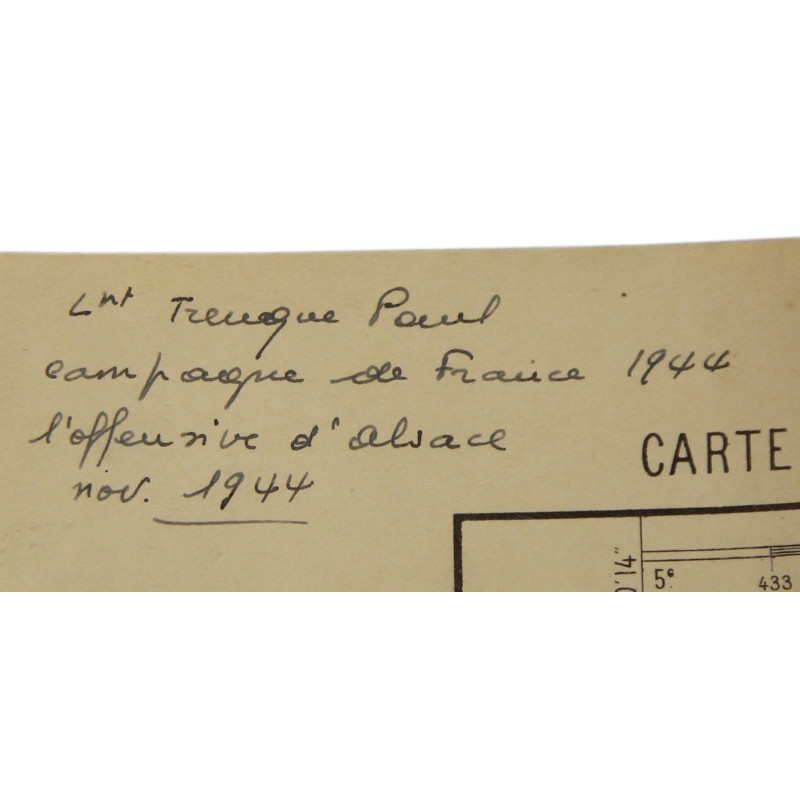 Lnt Trenque Paul
campagne de France 1944
l'offensive d'Alsace
nov. 1944
CARTE
0'14"
5e
433